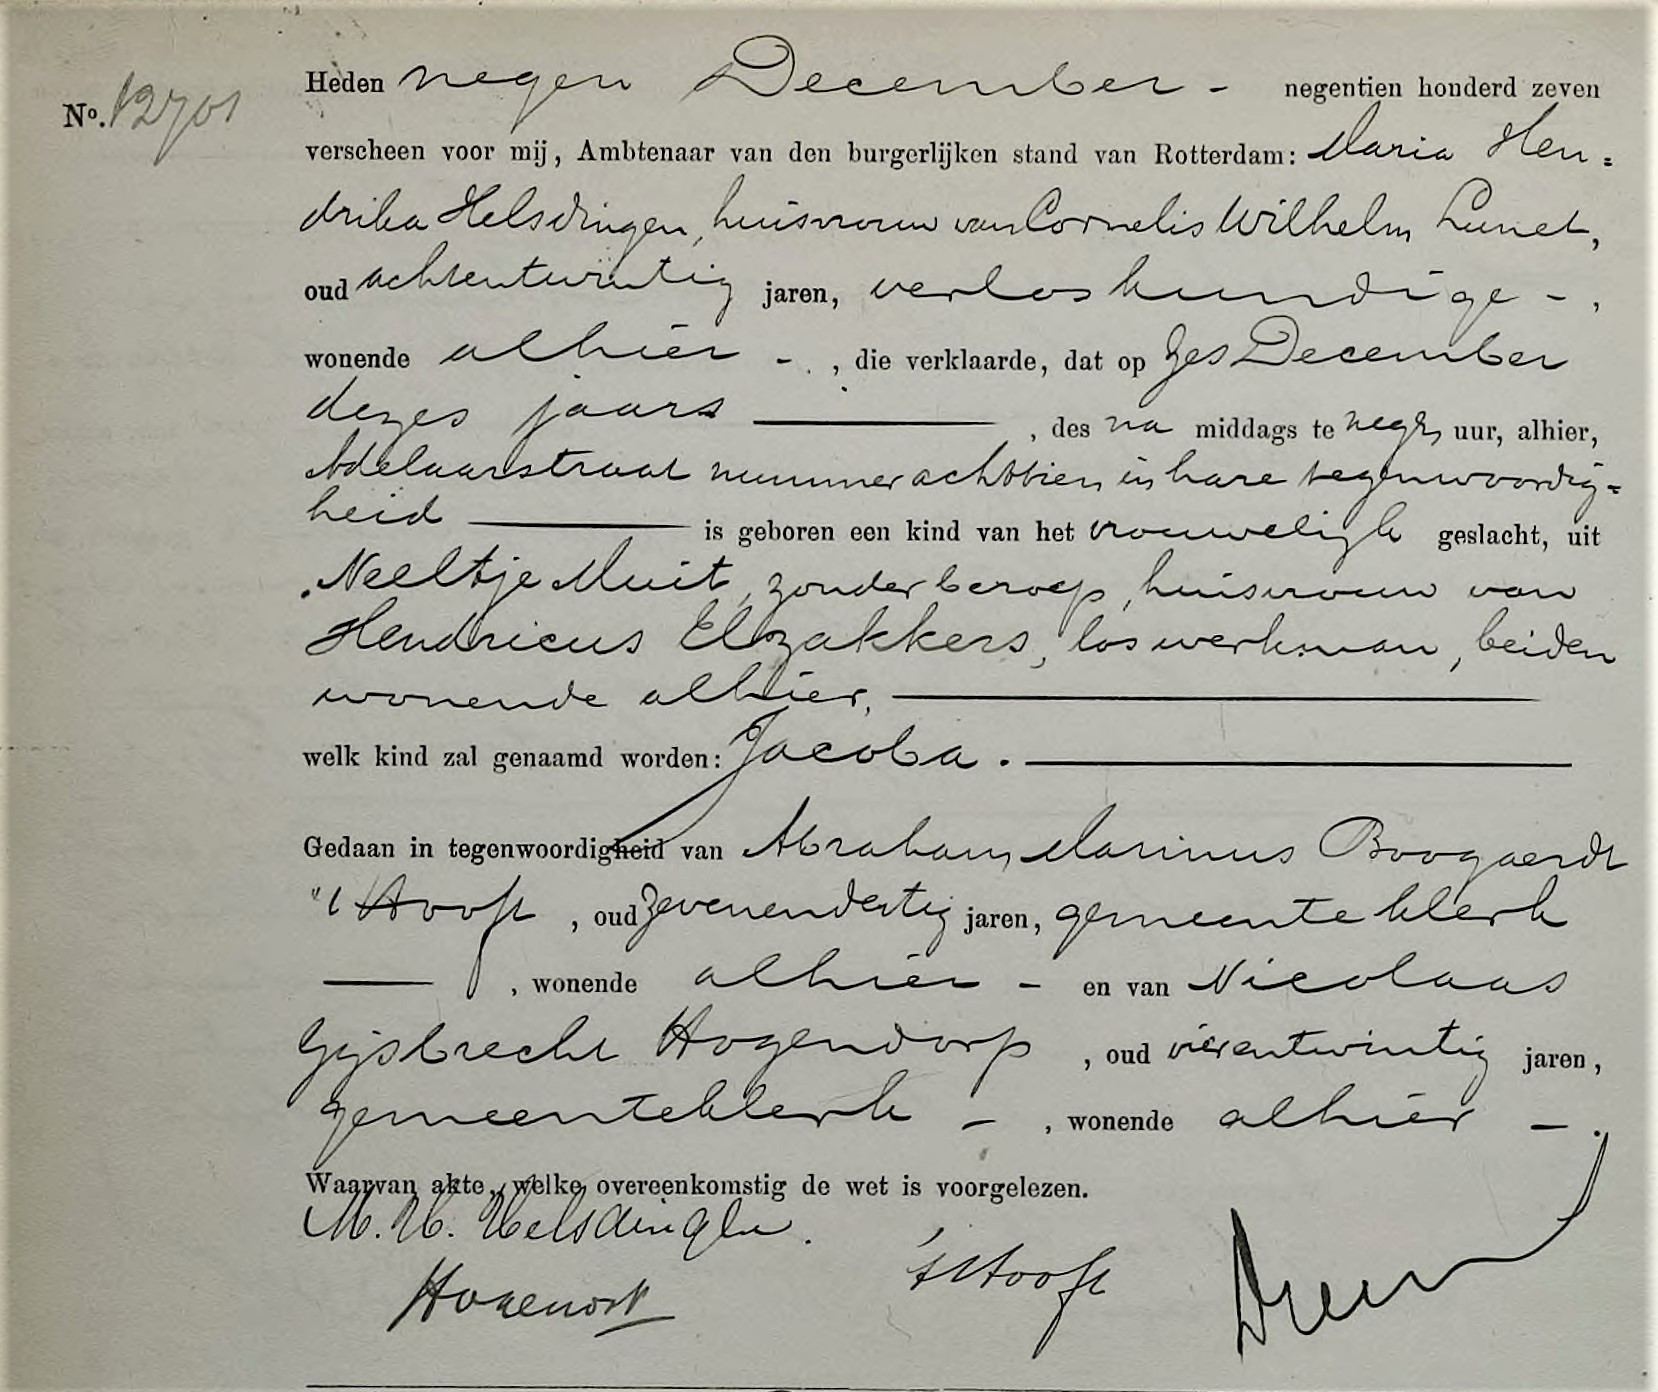 Heden negen December - negentien honderd zeven
No. 12701
verscheen voor mij, Ambtenaar van den burgerlijken stand van Rotterdam: Maria Hen=
drika Helsdingen, huisvrouw van Cornelis Wilhelm Lunet,
oud achtentwintig jaren, verloskundige - ,
wonende alhier - , die verklaarde, dat op zes December
dezes jaars , des na middags te negen uur, alhier,
Adelaarstraat nummer achttien in hare tegenwoordig=
heid is geboren een kind van het vrouwelijk geslacht, uit
Neeltje Muit, zonder beroep, huisvrouw van
Hendricus Elzakkers, los werkman, beiden
wonende alhier,
welk kind zal genaamd worden: Jacoba.
Gedaan in tegenwoordigheid van Abraham Marinus Boogaerdt
't Hooft, oud zevenendertig jaren, gemeenteklerk
, wonende alhier - en van Nicolaas
Gijsbrecht Hogendorp, oud vierentwintig jaren,
gemeenteklerk - , wonende alhier - .
Waarvan akte, welke overeenkomstig de wet is voorgelezen.
M. H. Helsdingen.
't Hooft